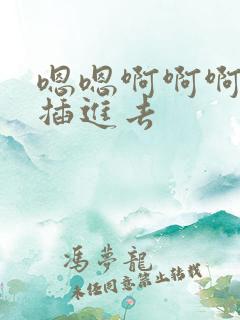 嗯嗯啊啊啊
插进去
冯梦龙
未经同意禁止转载